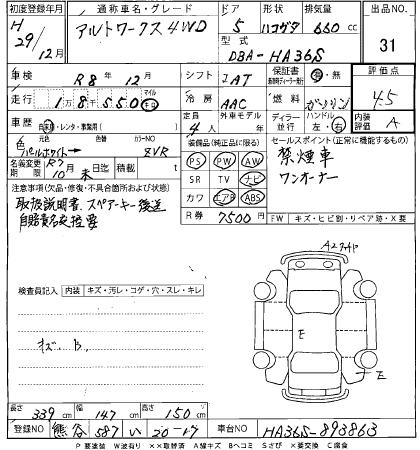 初度登録年月 通称車名・グレード ドア 形状 排気量 出品NO.
H 29/12月 アルトワークス4WD 5 ハコガタ 660cc 31
型式 DBA-HA36S
車検 R8年12月 シフト IAT 保証書 有・無 評価点
走行 1万8千550 マイル キロ 冷房 AAC 燃料 ガソリン 4.5
車歴 自家用・レンタ・事業用( ) 定員 4人 外車モデル ディーラー 並行 ハンドル 左・右 内装 A
色 元色 カラーNO
パールホワイト→ ZVR
装備品(純正品に限る) セールスポイント(正常に機能するもの)
名義変更 R7 10月末日迄 積載量 t
PS PW AW 禁煙車
SR TV ナビ ワンオーナー
カワ エアB ABS
注意事項(欠品・修復・不具合箇所および状態)
取扱説明書、スペアーキー後送
自賠責名変控要
R券 7500円 FW キズ・ヒビ割・リペア跡・X要
検査員記入 内装 キズ・汚レ・コゲ・穴・スレ・キレ
キズ. B.
E
E
長さ 339cm 幅 147cm 高さ 150cm
登録NO 熊谷 587 い 20-17 車台NO HA36S-893863
P 要塗装 W波有り ××取替済 A線キズ Bヘコミ Sさび ×要交換 C腐食